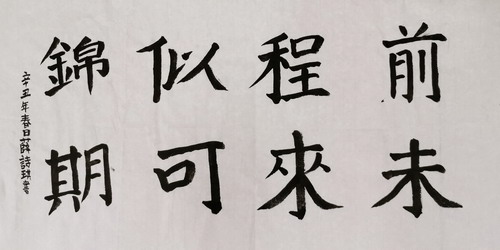 前未
程來
似可
錦期
辛丑年春日薛詩琪書